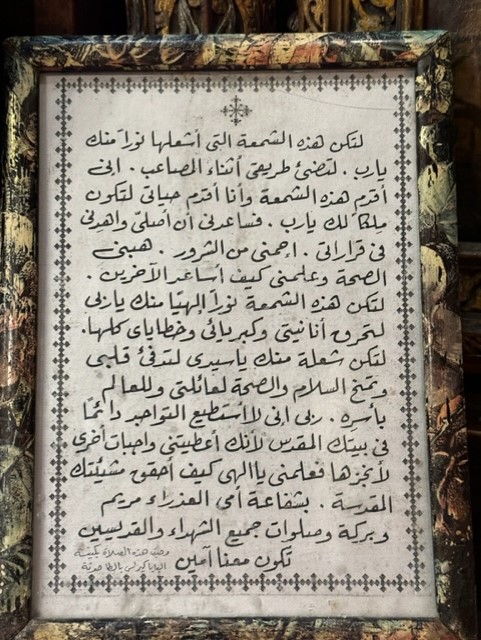 لتكن هذه الشمعة التى أشعلها نوراً منك
يارب . لتضئ طريقى أثناء المصاعب . انى
أقدم هذه الشمعة وأنا أقدم حياتى لتكون
ملكاً لك يارب . فساعدنى أن أصلى واهدنى
فى قراراتى . إحمنى من الشرور . هبنى
الصحة وعلمنى كيف أساعد الآخرين .
لتكن هذه الشمعة نوراً إلهيًا منك ياربى
لتحرق أنانيتى وكبريائى وخطاياى كلها.
لتكن شعلة منك ياسيدى لتدفئ قلبى
وتمنح السلام والصحة لعائلتى وللعالم
بأسره . ربى إنى لا أستطيع التواجد دائمًا
فى بيتك المقدس لأنك أعطيتنى واجبات أخرى
لأنجزها فعلمنى ياالهى كيف أحقق مشيئتك
المقدسة . بشفاعة أمى العذراء مريم
وبركة وصلوات جميع الشهداء والقديسين
تكون معنا آمين
هذه الصلاة بكنيسة
البابا كيرلس